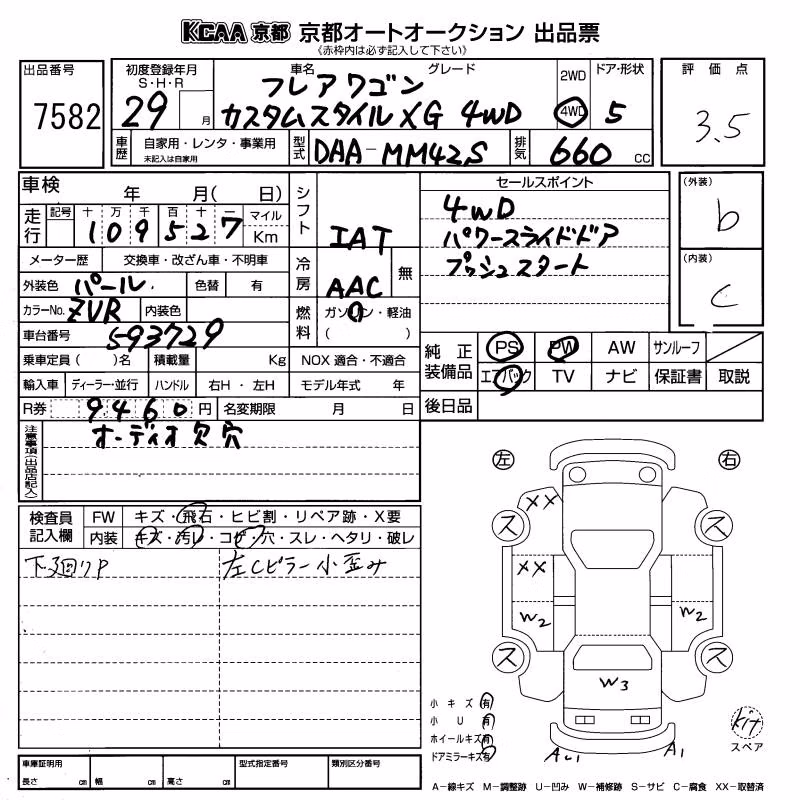 KCAA 京都 京都オートオークション 出品票
《赤枠内は必ず記入して下さい》
出品番号
7582
初度登録年月
S・H・R
29 月
車名 グレード
フレアワゴン
カスタムスタイルXG 4WD
2WD
4WD
ドア・形状
5
評価点
3.5
車歴 自家用・レンタ・事業用
未記入は自家用
型式 DAA-MM42S
排気 660 cc
車検 年 月( 日)
走行 記号 十 万 千 百 十 一 マイル
109527 Km
メーター歴 交換車・改ざん車・不明車
外装色 パール 色替 有
カラーNo. ZVR 内装色
車台番号 593729
乗車定員 ( )名 積載量 Kg
輸入車 ディーラー・並行 ハンドル 右H・左H
R券 9460 円 名変期限 月 日
シフト IAT
冷房 AAC 無
燃料 ガソリン・軽油
( )
NOX 適合・不適合
モデル年式 年
セールスポイント
4WD
パワースライドドア
プッシュスタート
(外装)
b
(内装)
C
純正装備品 PS PW AW サンルーフ
エアバック TV ナビ 保証書 取説
後日品
注意事項(出品店記入)
オーディオ欠穴
検査員記入欄 FW キズ・飛石・ヒビ割・リペア跡・X要
内装 キズ・汚レ・コゲ・穴・スレ・ヘタリ・破レ
下廻りP
左Cピラー小歪み
左 右
XX
ス ス
XX
W2 W2
ス ス
W3
小キズ 有
小U 有
ホイールキズ 有
ドアミラーキズ 有
A1
kit
スペア
A-線キズ M-調整跡 U-凹み W-補修跡 S-サビ C-腐食 XX-取替済
車庫証明用
長さ cm 幅 cm 高さ cm
型式指定番号
類別区分番号